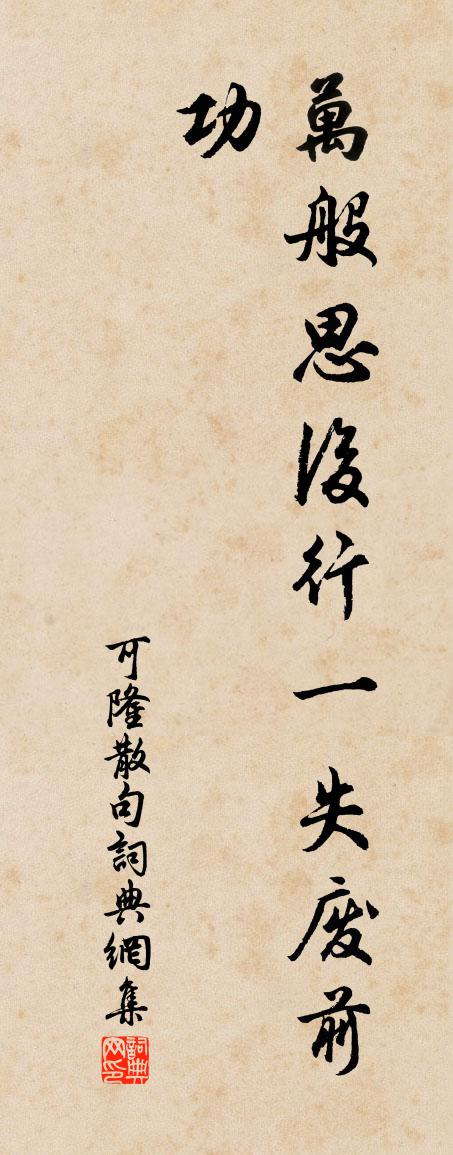 萬般思後行一失废前
功
可隆散句詞典網集
詞典
网印